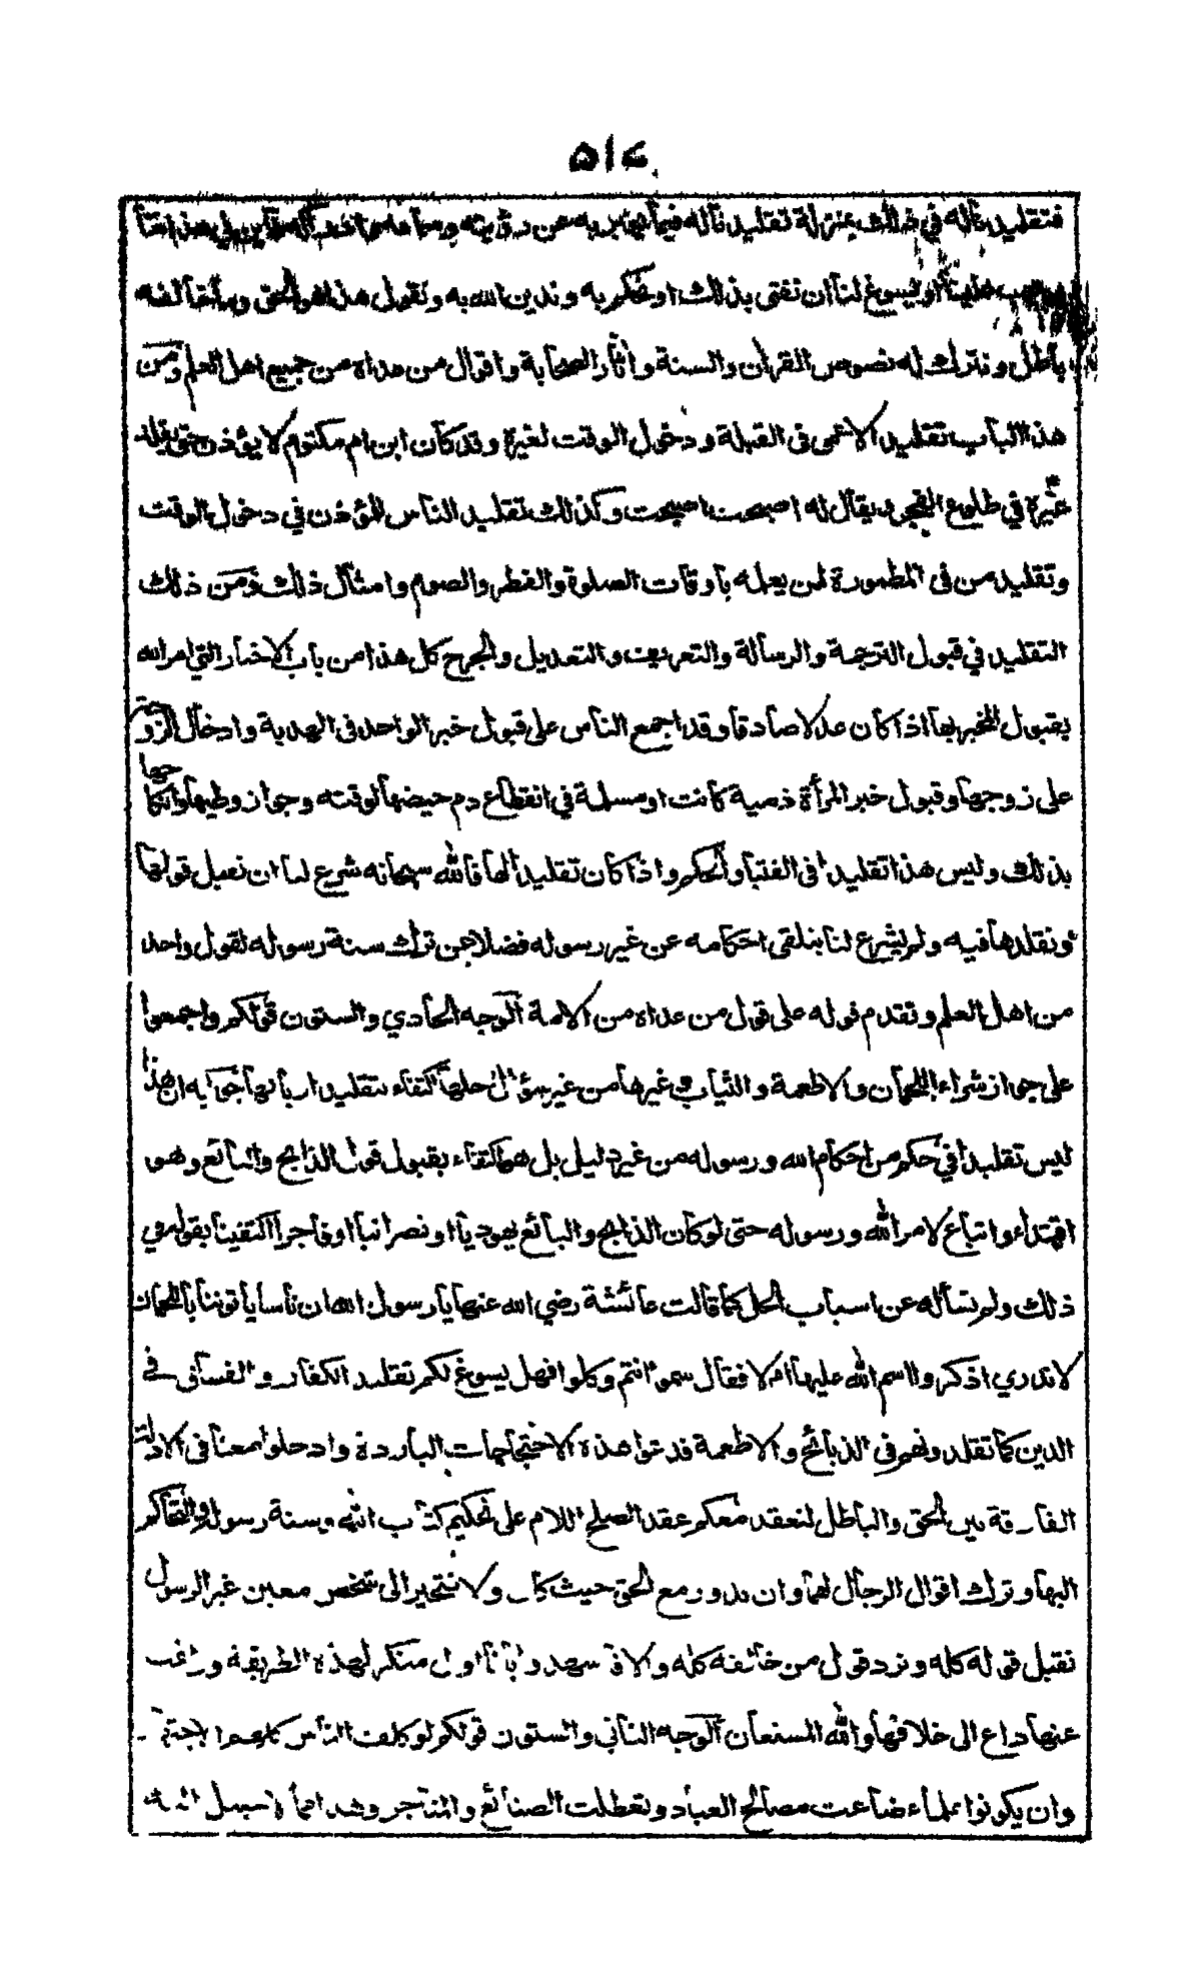 ٥١٤
فتقليدنا له في ذلك بمنزلة تقليدنا له فيما يخبر به عن رؤيته وسماعه
علينا او يسوغ لنا ان نفتى بذلك او نحكم به وندين الله به ونقول هذا هو الحق وما خالفه
باطل ونترك له نصوص القران والسنة واثار الصحابة واقوال من عداه من جميع اهل العلم ومن
هذا الباب تقليد الاعمى فى القبلة ودخول الوقت لغيره وقد كان ابن ام مكتوم لا يؤذن حتى يقلد
غيره في طلوع الفجر ويقال له اصبحت اصبحت وكذلك تقليد الناس للمؤذن في دخول الوقت
وتقليد من فى المطمورة لمن يعلمه باوقات الصلوة والفطر والصوم وامثال ذلك ومن ذلك
التقليد في قبول الترجمة والرسالة والتعريف والتعديل والجرح كل هذا من باب الاخبار التي امر الله
بقبول المخبر بها اذا كان عدلا صادقا وقد اجمع الناس على قبول خبر الواحد فى الهدية وادخال الزوجة
على زوجها وقبول خبر المرأة ذمية كانت او مسلمة في انقطاع دم حيضها لوقته وجواز وطيها وانكاحها
بذلك وليس هذا تقليدا فى الفتيا والحكم واذا كان تقليدا لها فالله سبحانه شرع لنا ان نقبل قولها
ونقلدها فيه ولم يشرع لنا نتلقى احكامه عن غير رسوله فضلا عن ترك سنة رسوله لقول واحد
من اهل العلم وتقدم قوله على قول من عداه من الامة الوجه الحادي والستون قولكم واجمعوا
على جواز شراء اللحمان والاطعمة والثياب وغيرها من غير سؤال عن حلها اكتفاء بتقليد اربابها جوابه ان هذا
ليس تقليدا في حكم من احكام الله ورسوله من غير دليل بل هو اكتفاء بقبول قول الذابح والبائع وهو
اقتداء واتباع لامر الله ورسوله حتى لو كان الذابح والبائع يهوديا او نصرانيا او فاجرا اكتفينا بقوله في
ذلك ولم نسأله عن اسباب الحل كما قالت عائشة رضي الله عنها يا رسول الله ان ناسا يأتوننا باللحمان
لا ندري اذكروا اسم الله عليها ام لا فقال سموا انتم وكلوا فهل يسوغ لكم تقليد الكفار والفساق في
الدين كما تقلدونهم فى الذبائح والاطعمة فدعوا هذه الاحتجاجات الباردة وادخلوا معنا فى الادلة
الفارقة بين الحق والباطل لنعقد معكم عقد الصلح اللازم على تحكيم كتاب الله وسنة رسوله والتحاكم
اليها وترك اقوال الرجال لهما وان ندور مع الحق حيث كان ولا نتحيز الى شخص معين غير الرسول
نقبل قوله كله ونرد قول من خالفه كله والا فاشهدوا بانا اول منكر لهذه الطريقة وراغب
عنها داع الى خلافها والله المستعان الوجه الثاني والستون قولكم لو كلف الناس كلهم الاجتهاد
وان يكونوا علماء ضاعت مصالح العباد وتعطلت الصنائع والمتاجر وهذا مما لا سبيل اليه